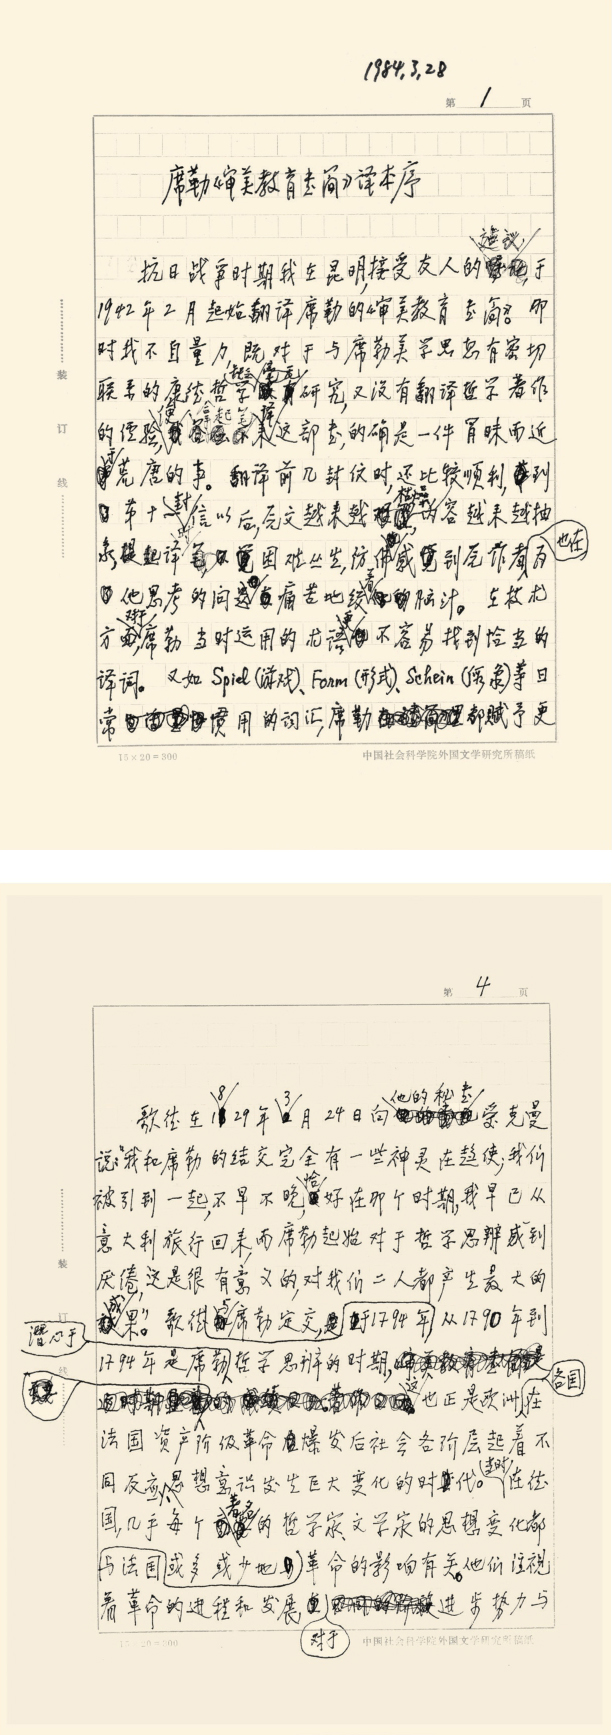 1984.3.28
第 1 页
席勒《审美教育书简》译本序
建议,
抗日战争时期我在昆明,接受友人的于
1942年2月起始翻译席勒的《审美教育书简》。那
时我不自量力,既对于与席勒美学思想有密切
联系的康德哲学研究,又没有翻译哲学著作
的经验,便拿起笔译这部书,的确是一件冒昧而近
于荒唐的事。翻译前几封信时,还比较顺利,到
十封信以后,原文越来越内容越来越抽
象,译困难丛生,仿佛感到原作者
也在
他思考的问题痛苦地绞着脑汁。在技术
方面,对于席勒当时运用的术语更不容易找到恰当的
译词。又如Spiel(游戏)、Form(形式)、Schein(假象)等日
常惯用的词汇,席勒都赋予更
装
订
线
15×20=300
中国社会科学院外国文学研究所稿纸
第 4 页
8 3 他的秘书
歌德在1829年3月24日向爱克曼
说:“我和席勒的结交完全有一些神灵在趋使;我们
被引到一起,不早不晚,恰好在那个时期,我早已从
意大利旅行回来,而席勒起始对于哲学思辨感到
厌倦,这是很有意义的,对我们二人都产生最大的
成果”。歌德与席勒定交,于1794年,从1790年到
潜心于
1794年是席勒哲学思辨的时期,
这也正是欧洲在
各国
法国资产阶级革命爆发后社会各阶层起着不
同反应、思想意识发生巨大变化的时代。这时,在德
国,几乎每个著名的哲学家、文学家的思想变化都
与法国或多或少地革命的影响有关。他们注视
着革命的进程和发展,进步势力与
对于
装
订
线
15×20=300
中国社会科学院外国文学研究所稿纸